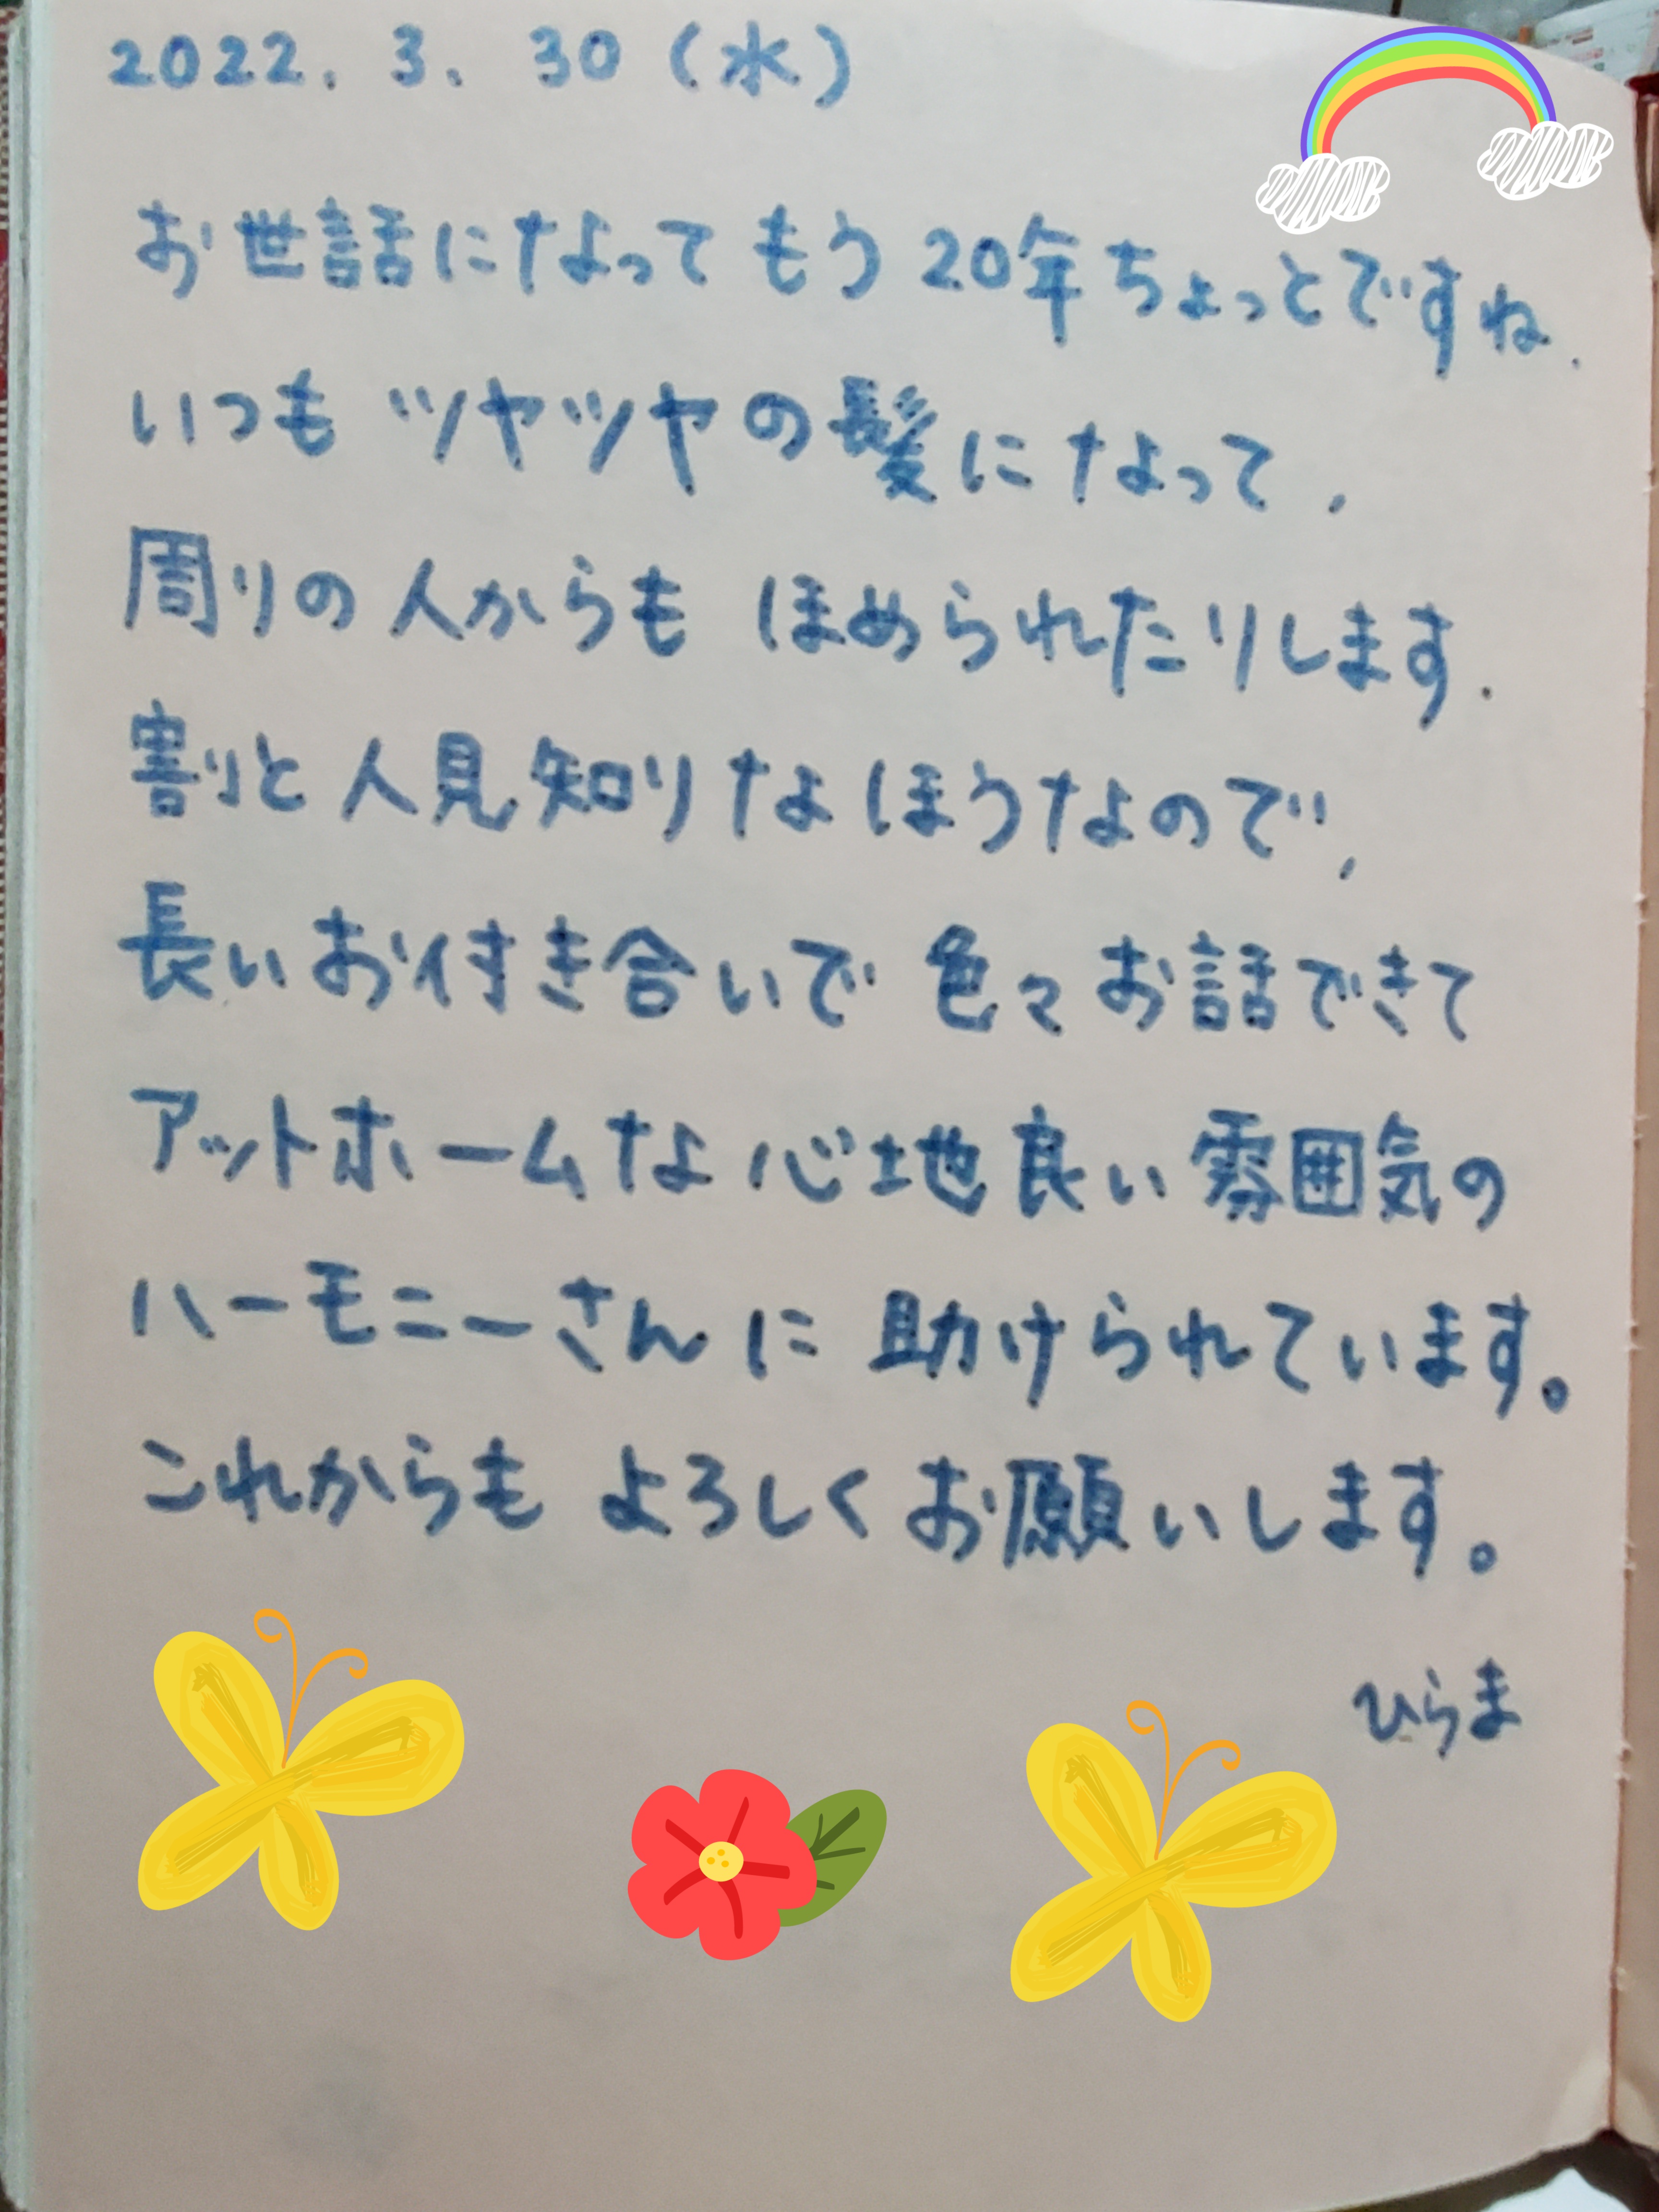 2022. 3. 30 (水)
お世話になって もう 20年ちょっとですね.
いつも ツヤツヤの髪になって,
周りの人からも ほめられたりします.
割と人見知りなほうなので,
長いお付き合いで 色々お話できて
アットホームな心地良い雰囲気の
ハーモニーさんに 助けられています。
これからも よろしくお願いします。
ひらま